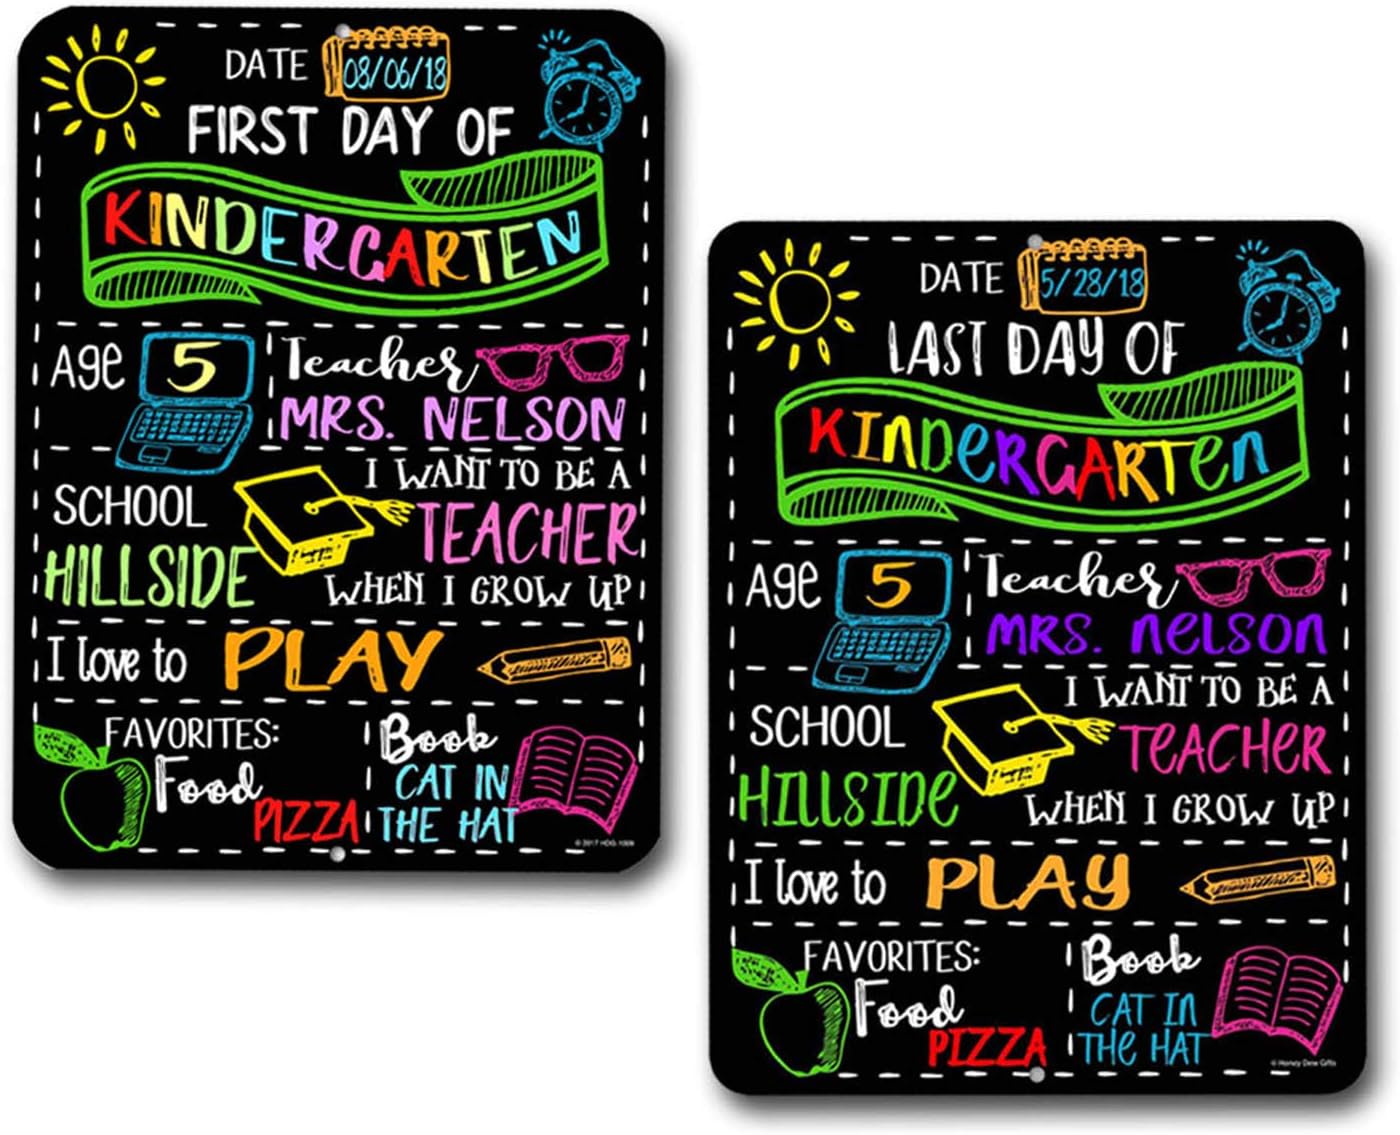 DATE 08/06/18
FIRST DAY OF
KINDERGARTEN
Age 5
Teacher
MRS. NELSON
SCHOOL
HILLSIDE
I WANT TO BE A
TEACHER
WHEN I GROW UP
I love to PLAY
FAVORITES:
Food
PIZZA
Book
CAT IN
THE HAT
© 2017 HDG 1009
DATE 5/28/18
LAST DAY OF
KINDERGARTEN
Age 5
Teacher
MRS. NELSON
SCHOOL
HILLSIDE
I WANT TO BE A
TEACHER
WHEN I GROW UP
I love to PLAY
FAVORITES:
Food
PIZZA
Book
CAT IN
THE HAT
© Honey Dew Gifts